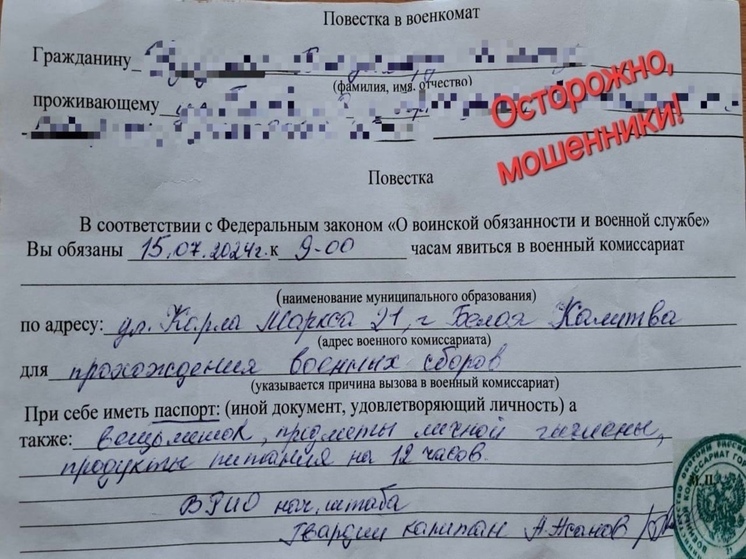 Повестка в военкомат
Гражданину
(фамилия, имя, отчество)
проживающему
Осторожно,
мошенники!
Повестка
В соответствии с Федеральным законом «О воинской обязанности и военной службе»
Вы обязаны 15.07.2024г. к 9-00 часам явиться в военный комиссариат
(наименование муниципального образования)
по адресу: ул. Карла Маркса 21, г Белая Калитва
(адрес военного комиссариата)
для прохождения военных сборов
(указывается причина вызова в военный комиссариат)
При себе иметь паспорт: (иной документ, удовлетворяющий личность) а
также: вещьмешок, предметы личной гигиены,
продукты питания на 12 часов.
М.П.
ВРИО нач. штаба
Гвардии капитан